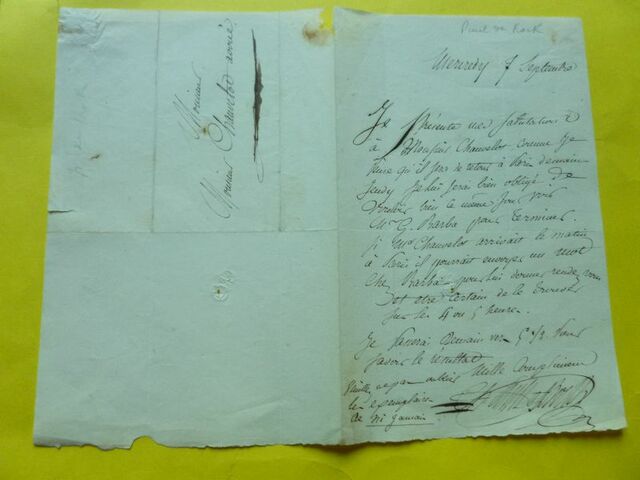 Paul de Kock
Mercredy 7 Septembre
Je présente mes salutations
à Monsieur Chauvelot comme je
pense qu'il sera de retour à Paris demain
jeudy je lui serai bien obligé de
vouloir bien le même jour voir
Mr G. Barba pour terminer.
Si Mr Chauvelot arrivait le matin
à Paris il pourrait envoyer un mot
chez Barba pour lui donner rendez vous
et être certain de le trouver
sur les 4 ou 5 heures.
Je passerai demain vers 5 1/2 pour
savoir le résultat
Mille compliments
Veuillez ne pas oublier
les exemplaires
de ni jamais
Monsieur
Monsieur Chauvelot avoué